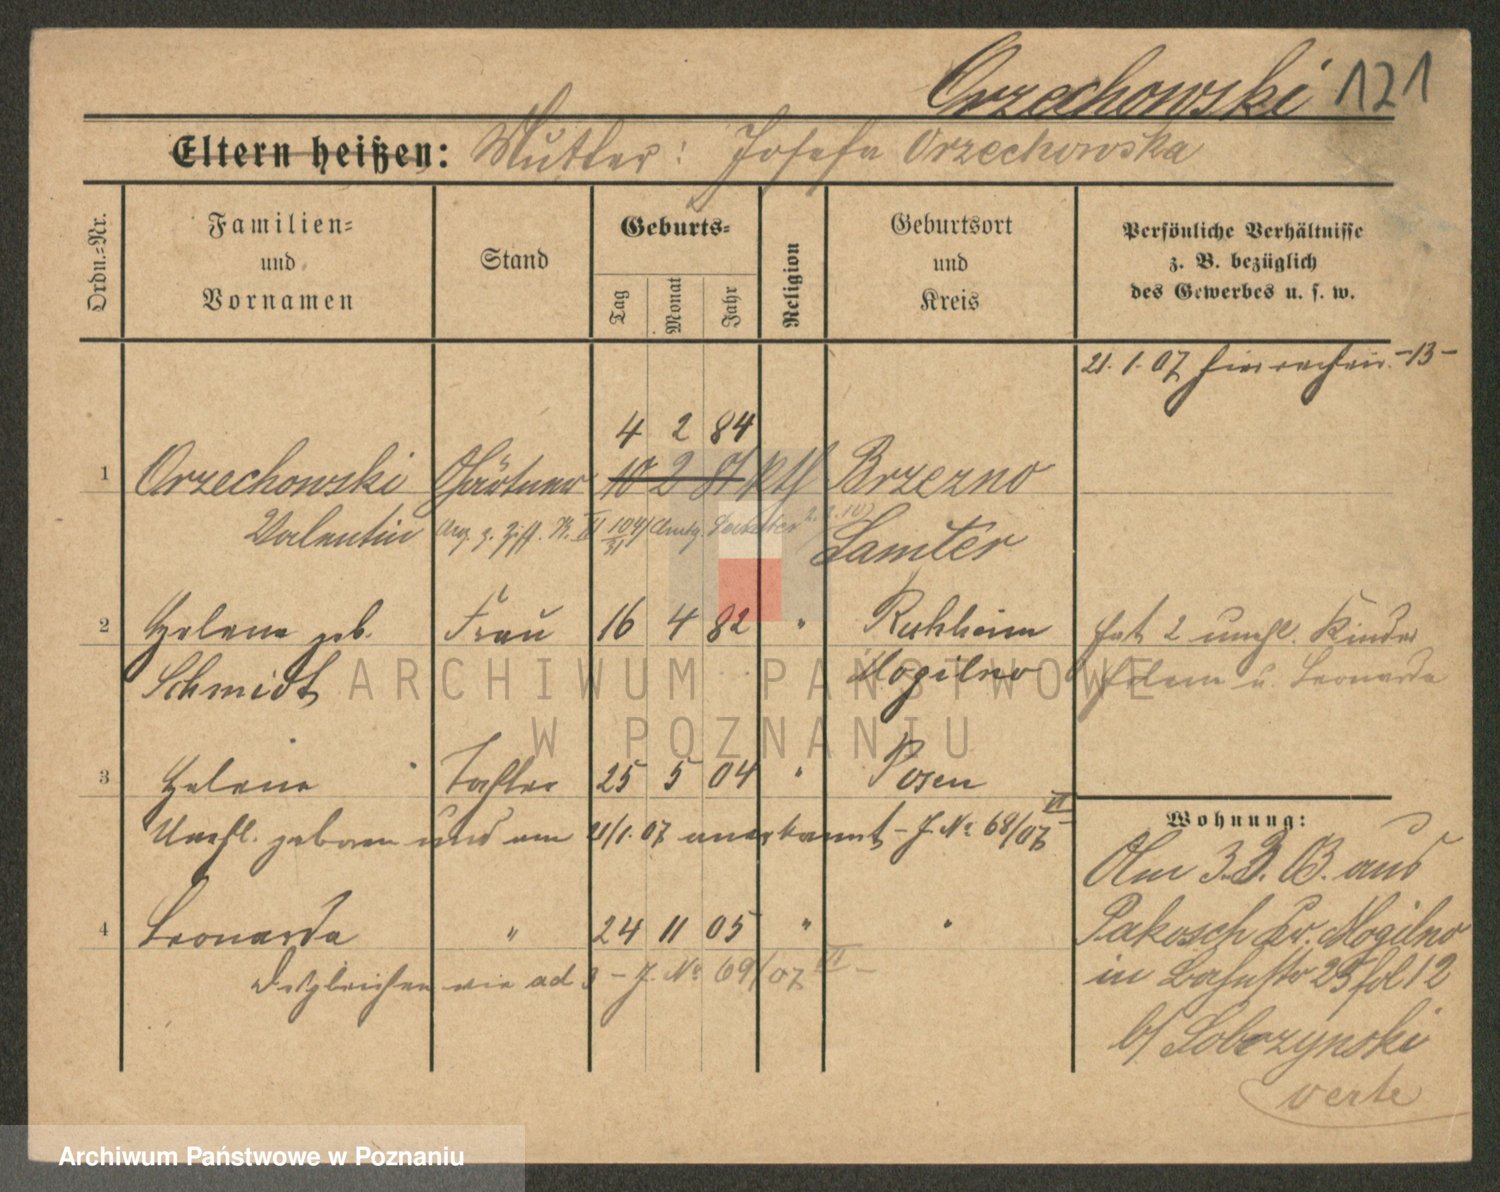 Orzechowski 121
Eltern heißen: Mutter: Josefa Orzechowska
Ordn.=Nr.
Familien=
und
Vornamen
Stand
Geburts=
Tag
Monat
Jahr
Religion
Geburtsort
und
Kreis
Persönliche Verhältnisse
z. B. bezüglich
des Gewerbes u. s. w.
21. 1. 07 -13-
4 2 84
1 Orzechowski Gärtner 10 2 81 kth Brzezno
Valentin Samter
2 Helene geb. Frau 16 4 82 " Mogilno
Schmidt
hat 2 unehl. Kinder
Helene u. Leonarda
3 Helene Tochter 25 5 04 " Posen
Unehl. geboren und am 21/1. 07 anerkannt - J. No 68/07 VI -
4 Leonarda " 24 11 05 " "
Desgleichen wie ad 3 - J. No 69/07 VI -
Wohnung:
Am 3.3.03. aus
Pakosch Kr. Mogilno
in 12
b/ Sobczynski
verte
ARCHIWUM PAŃSTWOWE
W POZNANIU
Archiwum Państwowe w Poznaniu